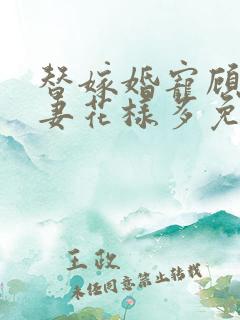 替嫁婚宠顾
妻花样多免
王政
未经同意禁止转载